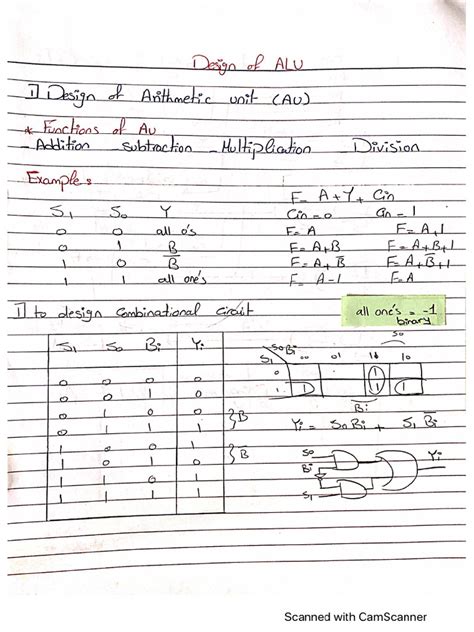 Design of ALU
1] Design of Arithmetic unit (AU)
* Functions of AU
- Addition - subtraction - Multiplication - Division
Example:
F= A+Y+Cin
S1 S0 Y Cin=0 Cin=1
0 0 all 0's F= A F= A+1
0 1 B F= A+B F= A+B+1
1 0 B̅ F= A+B̅ F= A+B̅+1
1 1 all one's F= A-1 F=A
1] to design Combinational Circuit
all one's = -1
binary
S1 S0 Bi Yi
0 0 0 0
0 0 1 0
0 1 0 0
0 1 1 1
} B
1 0 0 1
1 0 1 0
} B̅
1 1 0 1
1 1 1 1
S0
S0Bi
S1 00 01 11 10
0 1
1 1 1 1
Bi
Yi = S0Bi + S1 B̅i
S0
Bi
S1
Yi
Scanned with CamScanner